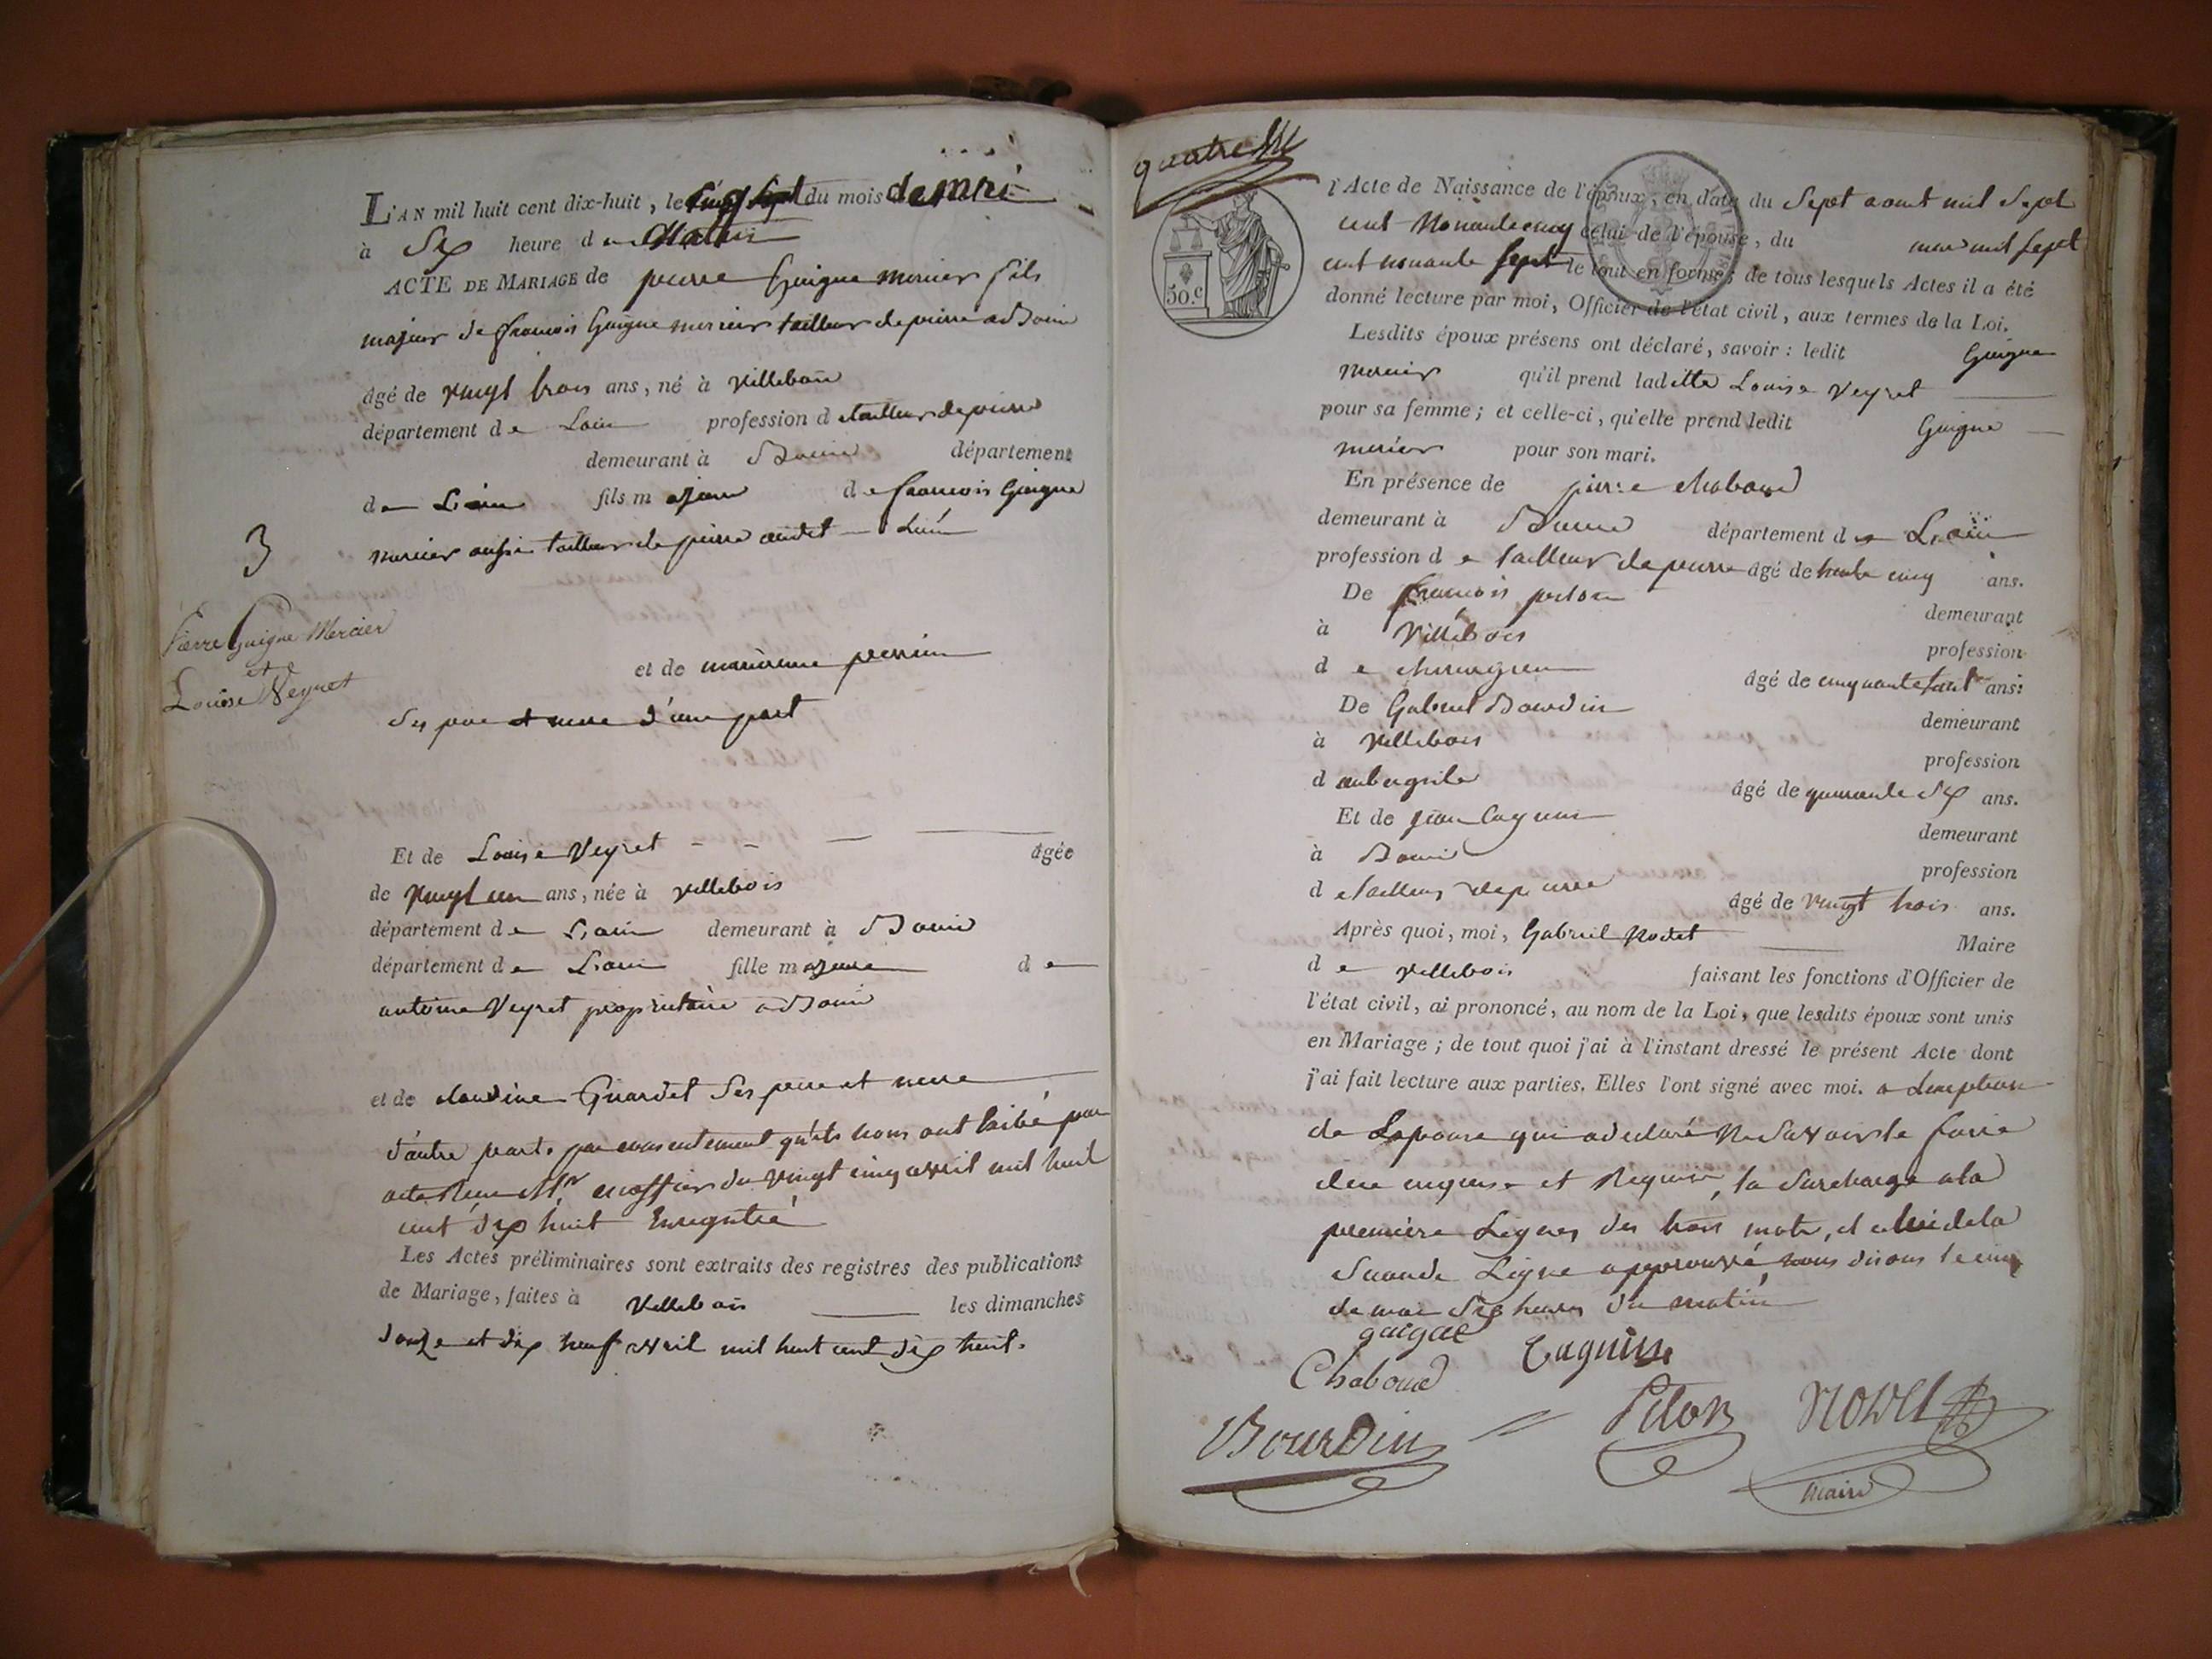 L'AN mil huit cent dix-huit, le cinq du mois de mai
à Six heure du Matin
ACTE DE MARIAGE de pierre Guigue mercier fils
majeur de francois Guigue mercier tailleur de pierre a Bouis
âgé de vingt trois ans, né à Villebois
département de Lain profession d etailleur de pierre
demeurant à Bouis département
de Lain fils majeur de francois Guigue
mercier aussi tailleur de pierre audit
3
Pierre Guigue Mercier
et
Louise Veyret
et de marianne perrin
Ses pere et mere d'une part
Et de Louise Veyret âgée
de vingt un ans, née à villebois
département de Lain demeurant à Bouis
département de Lain fille majeure de
antoine Veyret propriétaire a Bouis
et de claudine Guardet Ses pere et mere
d'autre part. par consentement qu'ils nous ont
acte Mr du vingt cinq avril mil huit
cent dix huit Enregistré
Les Actes préliminaires sont extraits des registres des publications
de Mariage, faites à Villebois les dimanches
douze et dix neuf avril mil huit cent dix huit.
quatre
50.c
l'Acte de Naissance de l'époux, en date du Sept aout mil Sept
cent Nonante cinq celui de l'épouse, du mars mil Sept
cent nonante Sept le tout en forme; de tous lesquels Actes il a été
donné lecture par moi, Officier de l'état civil, aux termes de la Loi.
Lesdits époux présens ont déclaré, savoir : ledit Guigue
mercier qu'il prend laditte Louise Veyret
pour sa femme; et celle-ci, qu'elle prend ledit Guigue
mercier pour son mari.
En présence de pierre chaboud
demeurant à Bouis département de Lain
profession d e tailleur de pierre âgé de trente cinq ans.
De francois demeurant
à Villebois profession
d e chirurgien âgé de cinquante ans:
De Gabriel Bourdin demeurant
à Villebois profession
d aubergiste âgé de quarante Six ans.
Et de jean Cagnin demeurant
à Bouis profession
d etailleur de pierre âgé de vingt trois ans.
Après quoi, moi, Gabriel Nodet Maire
d e villebois faisant les fonctions d'Officier de
l'état civil, ai prononcé, au nom de la Loi, que lesdits époux sont unis
en Mariage; de tout quoi j'ai à l'instant dressé le présent Acte dont
j'ai fait lecture aux parties. Elles l'ont signé avec moi. a Lexeption
de Lepouse qui a declaré Ne Savoir le faire
de ce enquise et Requise, la Surcharge a la
premiere Lignes des trois mots, et celui de la
Seconde Ligne approuvé nous disons le cinq
de mai Six heures du matin
guigue
Chaboud
Cagnin
Bourdin
Pilon
Nodet
maire